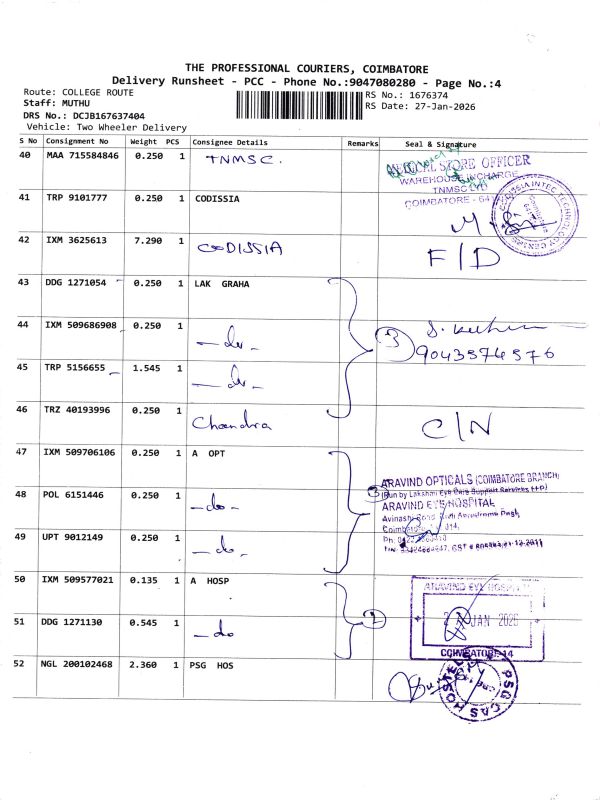 THE PROFESSIONAL COURIERS, COIMBATORE
Delivery Runsheet - PCC - Phone No.:9047080280 - Page No.:4
Route: COLLEGE ROUTE
Staff: MUTHU
DRS No.: DCJB167637404
Vehicle: Two Wheeler Delivery
RS No.: 1676374
RS Date: 27-Jan-2026
S No Consignment No Weight PCS Consignee Details Remarks Seal & Signature
40 MAA 715584846 0.250 1 TNMSC.
MEDICAL STORE OFFICER
WAREHOUSE INCHARGE
TNMSC LTD
COIMBATORE - 641
41 TRP 9101777 0.250 1 CODISSIA
CODISSIA INTEC TECHNOLOGY CENTRE
Coimbatore
42 IXM 3625613 7.290 1 CODISSIA F/D
43 DDG 1271054 0.250 1 LAK GRAHA
44 IXM 509686908 0.250 1 -do-
3
9043574576
45 TRP 5156655 1.545 1 -do-
46 TRZ 40193996 0.250 1 Chandra C/N
47 IXM 509706106 0.250 1 A OPT
48 POL 6151446 0.250 1 -do-
3
ARAVIND OPTICALS (COIMBATORE BRANCH)
(Run by Lakshmi Eye Care Support Services LLP)
ARAVIND EYE HOSPITAL
Avinashi Road
49 UPT 9012149 0.250 1 -do-
50 IXM 509577021 0.135 1 A HOSP
51 DDG 1271130 0.545 1 -do
2
ARAVIND EYE HOSPITAL
JAN 2026
COIMBATORE-14
52 NGL 200102468 2.360 1 PSG HOS
PSG CAS HOSTELS